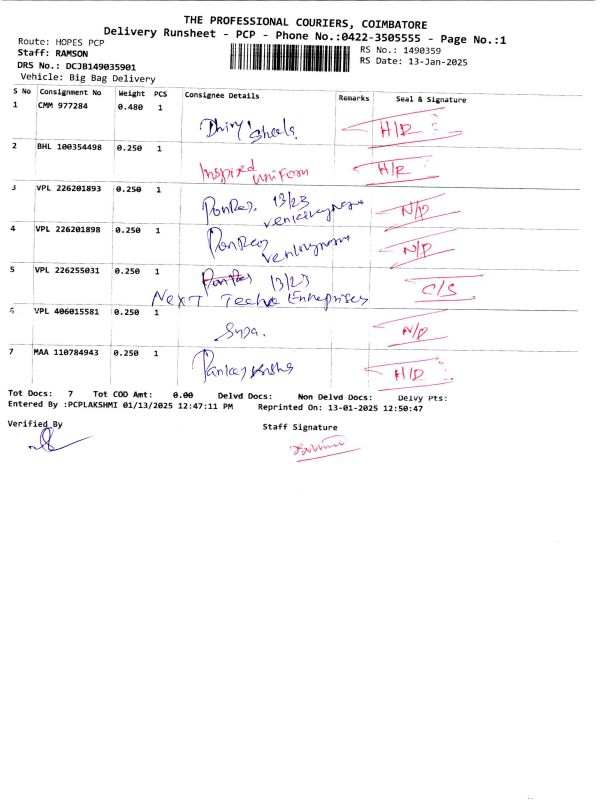 THE PROFESSIONAL COURIERS, COIMBATORE
Delivery Runsheet - PCP - Phone No.:0422-3505555 - Page No.:1
Route: HOPES PCP
RS No.: 1490359
Staff: RAMSON
RS Date: 13-Jan-2025
DRS No.: DCJB149035901
Vehicle: Big Bag Delivery
S No Consignment No Weight PCS Consignee Details Remarks Seal & Signature
1 CMM 977284 0.480 1 H/R
2 BHL 100354498 0.250 1 Inspired uniform H/R
3 VPL 226201893 0.250 1 13/23 N/P
4 VPL 226201898 0.250 1 N/P
5 VPL 226255031 0.250 1 13/23 C/S
NexT Techno Enterprises
6 VPL 406015581 0.250 1 N/P
7 MAA 110784943 0.250 1 H/D
Tot Docs: 7 Tot COD Amt: 0.00 Delvd Docs: Non Delvd Docs: Delvy Pts:
Entered By :PCPLAKSHMI 01/13/2025 12:47:11 PM Reprinted On: 13-01-2025 12:50:47
Verified By
Staff Signature